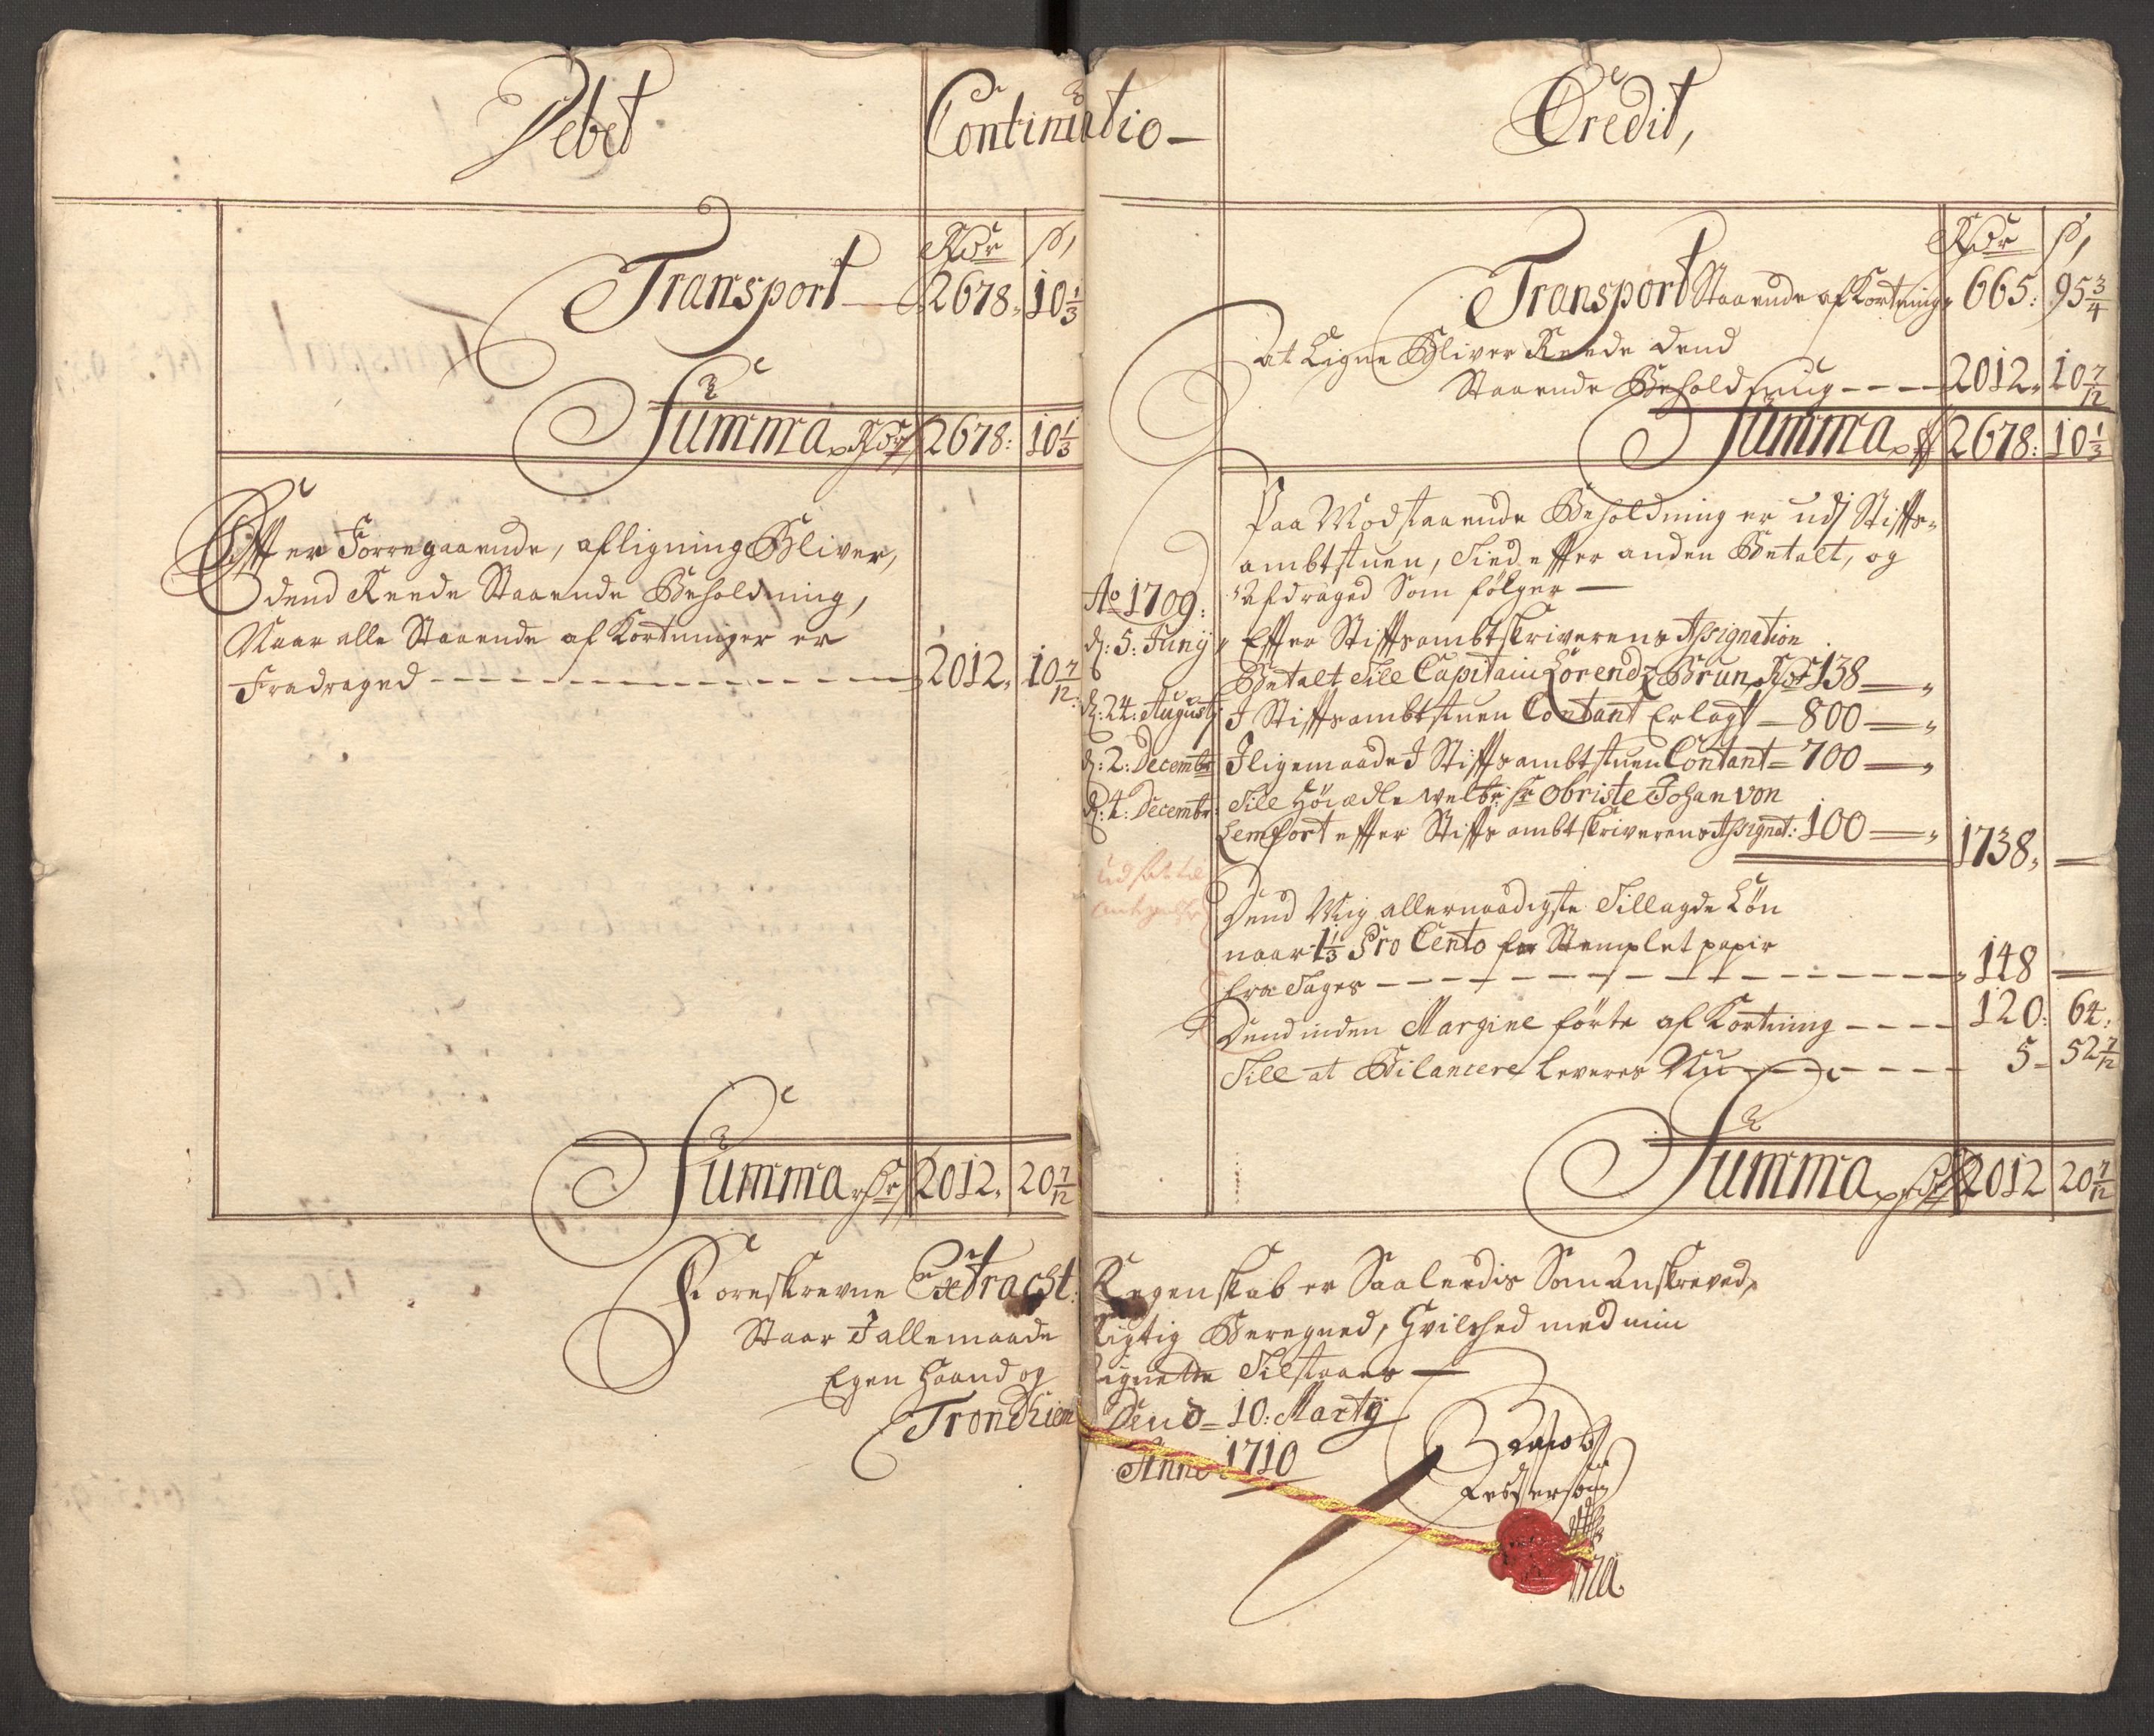 Debet
Continuatio
Credit,
Rdr ß
Transport 2678. 10 1/3
Summa Rdr 2678: 10 1/3
Effter Forregaaende, afligning Bliver,
dend Reede Staaende Beholdning,
Naar alle Staaende af Kortninger er
Fradraged 2012. 10 7/12
Summa Rdr 2012. 20 7/12
Rdr ß
Transport Staaende af Kortning 665: 95 3/4
at Ligne Bliver Reede dend
Staaende Beholdning 2012. 10 7/12
Summa 2678: 10 1/3
Paa Modstaaende Beholdning er udj Stiffts-
ambtstuen, Tied effter anden Betalt, og
Ao 1709: Afdraged Som følger
d: 5: Junij Effter Stifftsambtskriverens Assignation
Betalt till Capitain Lorendz Brun Rdr 138
d: 24: Augustj I Stifftsambtstuen Contant Erlagt 800
d: 2: Decembr Iligemaade I Stifftsambtstuen Contant 700
d: 4: Decembr: Till Höiædle welbr: Hr Obriste Johan von
Lemfort effter Stifftsambtskriverens Assignat: 100 1738.
udsat til
Dend Mig allernaadigste Tillagde Løn
naar 1 1/3 Pro Cento for Stemplet papir
fra Tages 148
Dend inden Margine førte af Kortning 120: 64.
Till at Bilancere Leveres Nu 5 52 7/12
Summa Rdr 2012 20 7/12
Foreskrevne Extracht Regenskab er Saaleedis Som Anskreved,
Staar I allemaade Rigtig Beregned, Hvilched med min
Egen Haand og Signette Tilstaaes
Trondhiem Dend 10: Martij
Anno 1710